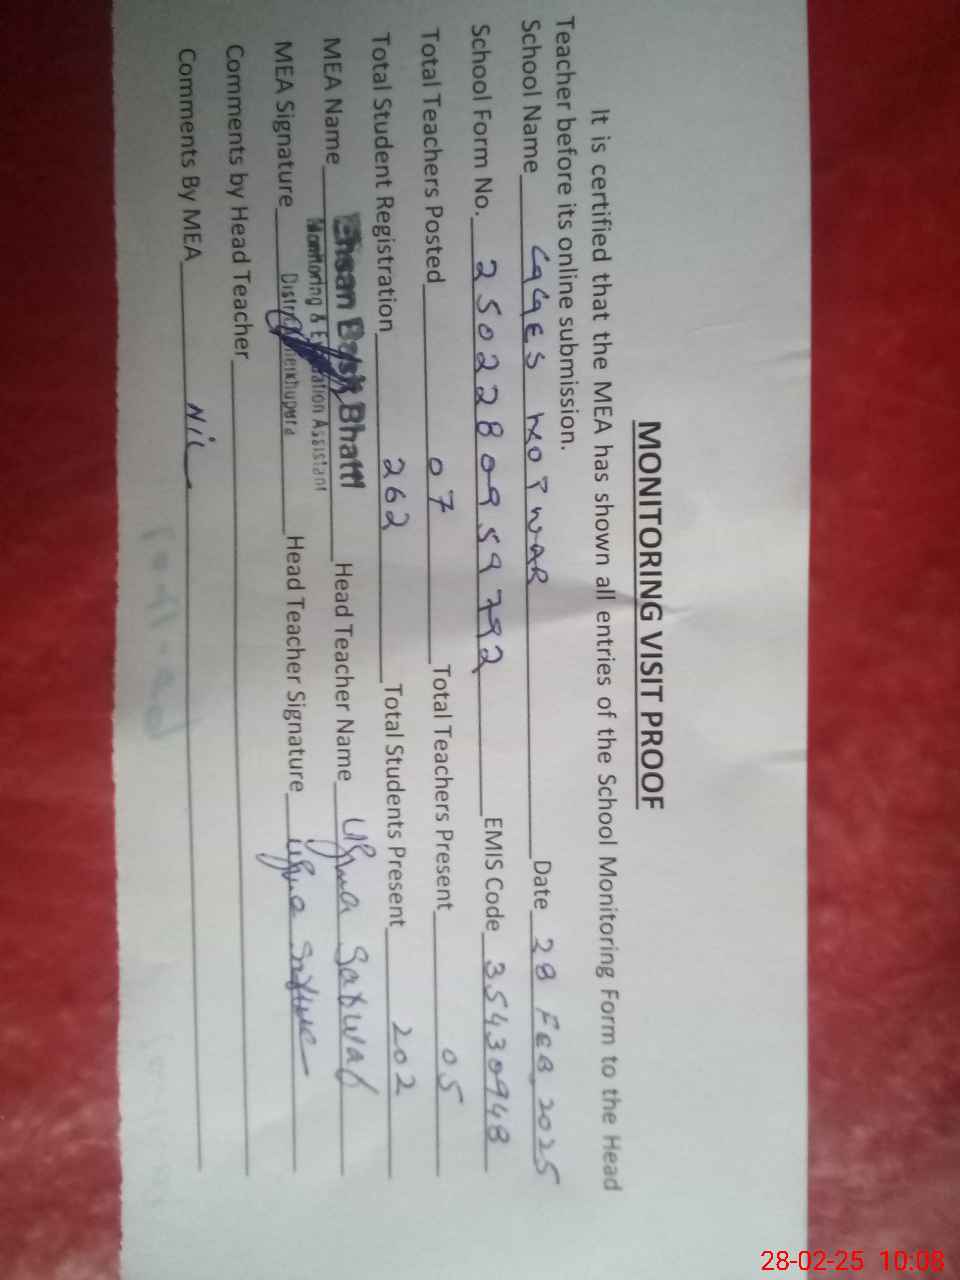 MONITORING VISIT PROOF
It is certified that the MEA has shown all entries of the School Monitoring Form to the Head
Teacher before its online submission.
School Name GGES Date 28 FEB, 2025
School Form No. EMIS Code 35430948
Total Teachers Posted 07 Total Teachers Present 05
Total Student Registration 262 Total Students Present 202
MEA Name Ehsan Bhatti Head Teacher Name
Monitoring & Assistant
MEA Signature Head Teacher Signature
Comments by Head Teacher
Comments By MEA Nil
28-02-25 10:08